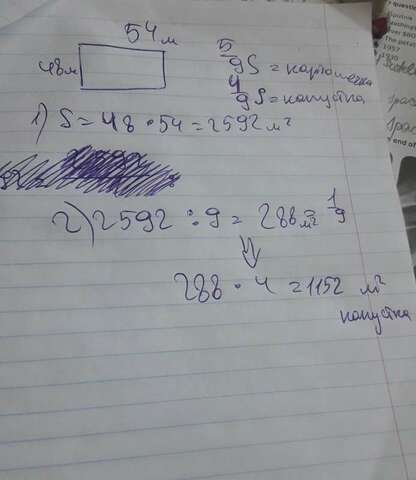 54 м
48м
5/9 S = картошка
4/9 S = капустка
1) S = 48 · 54 = 2592 м²
2) 2592 ÷ 9 = 288 м² = 1/9
⇓
288 · 4 = 1152 м²
капустка
end of
1957